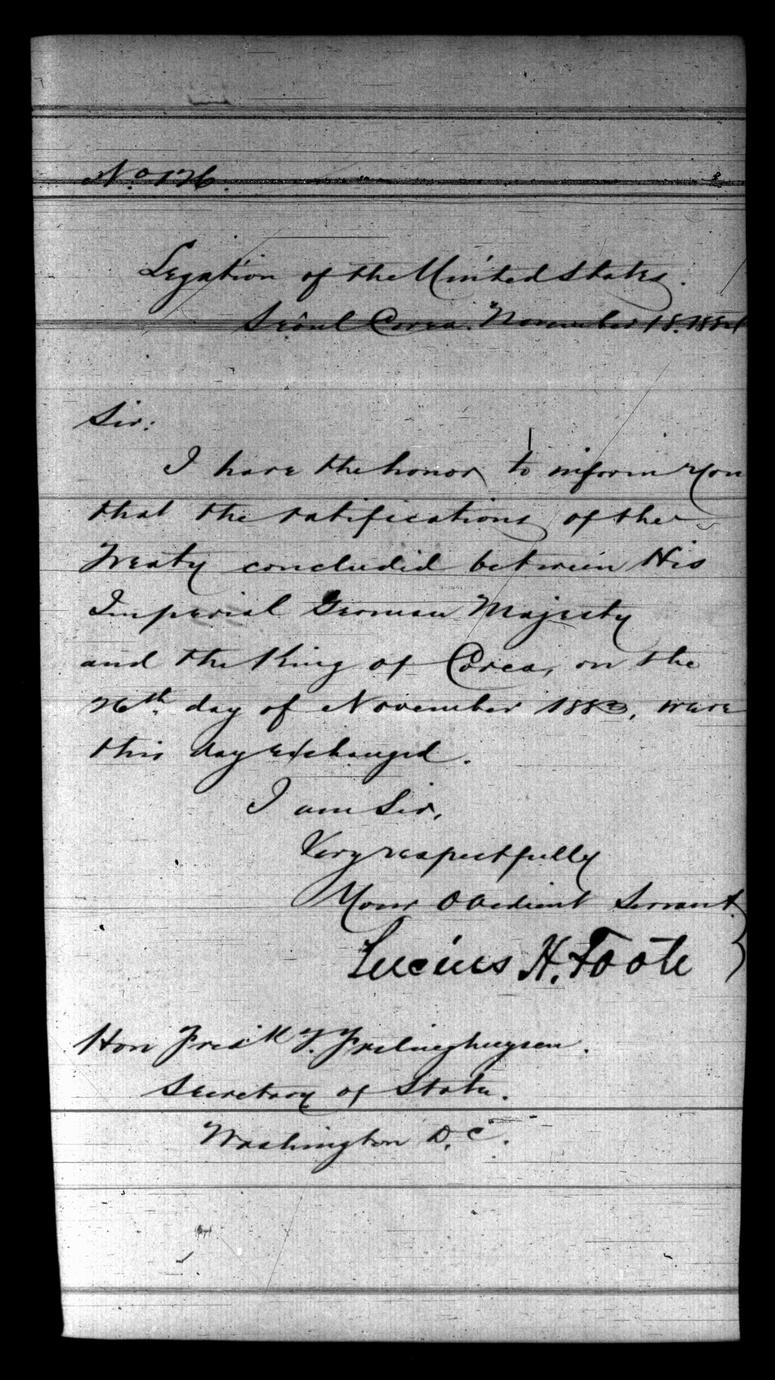 No 126.
Legation of the United States.
Seoul Corea. November 18. 1884
Sir:
I have the honor to inform you
that the ratifications of the
Treaty concluded between His
Imperial German Majesty
and the King of Corea, on the
26th day of November 1883, were
this day exchanged.
I am Sir,
Very respectfully
Your Obedient Servant.
Lucius H. Foote
Hon Fredk T. Frelinghuysen.
Secretary of State.
Washington D.C.